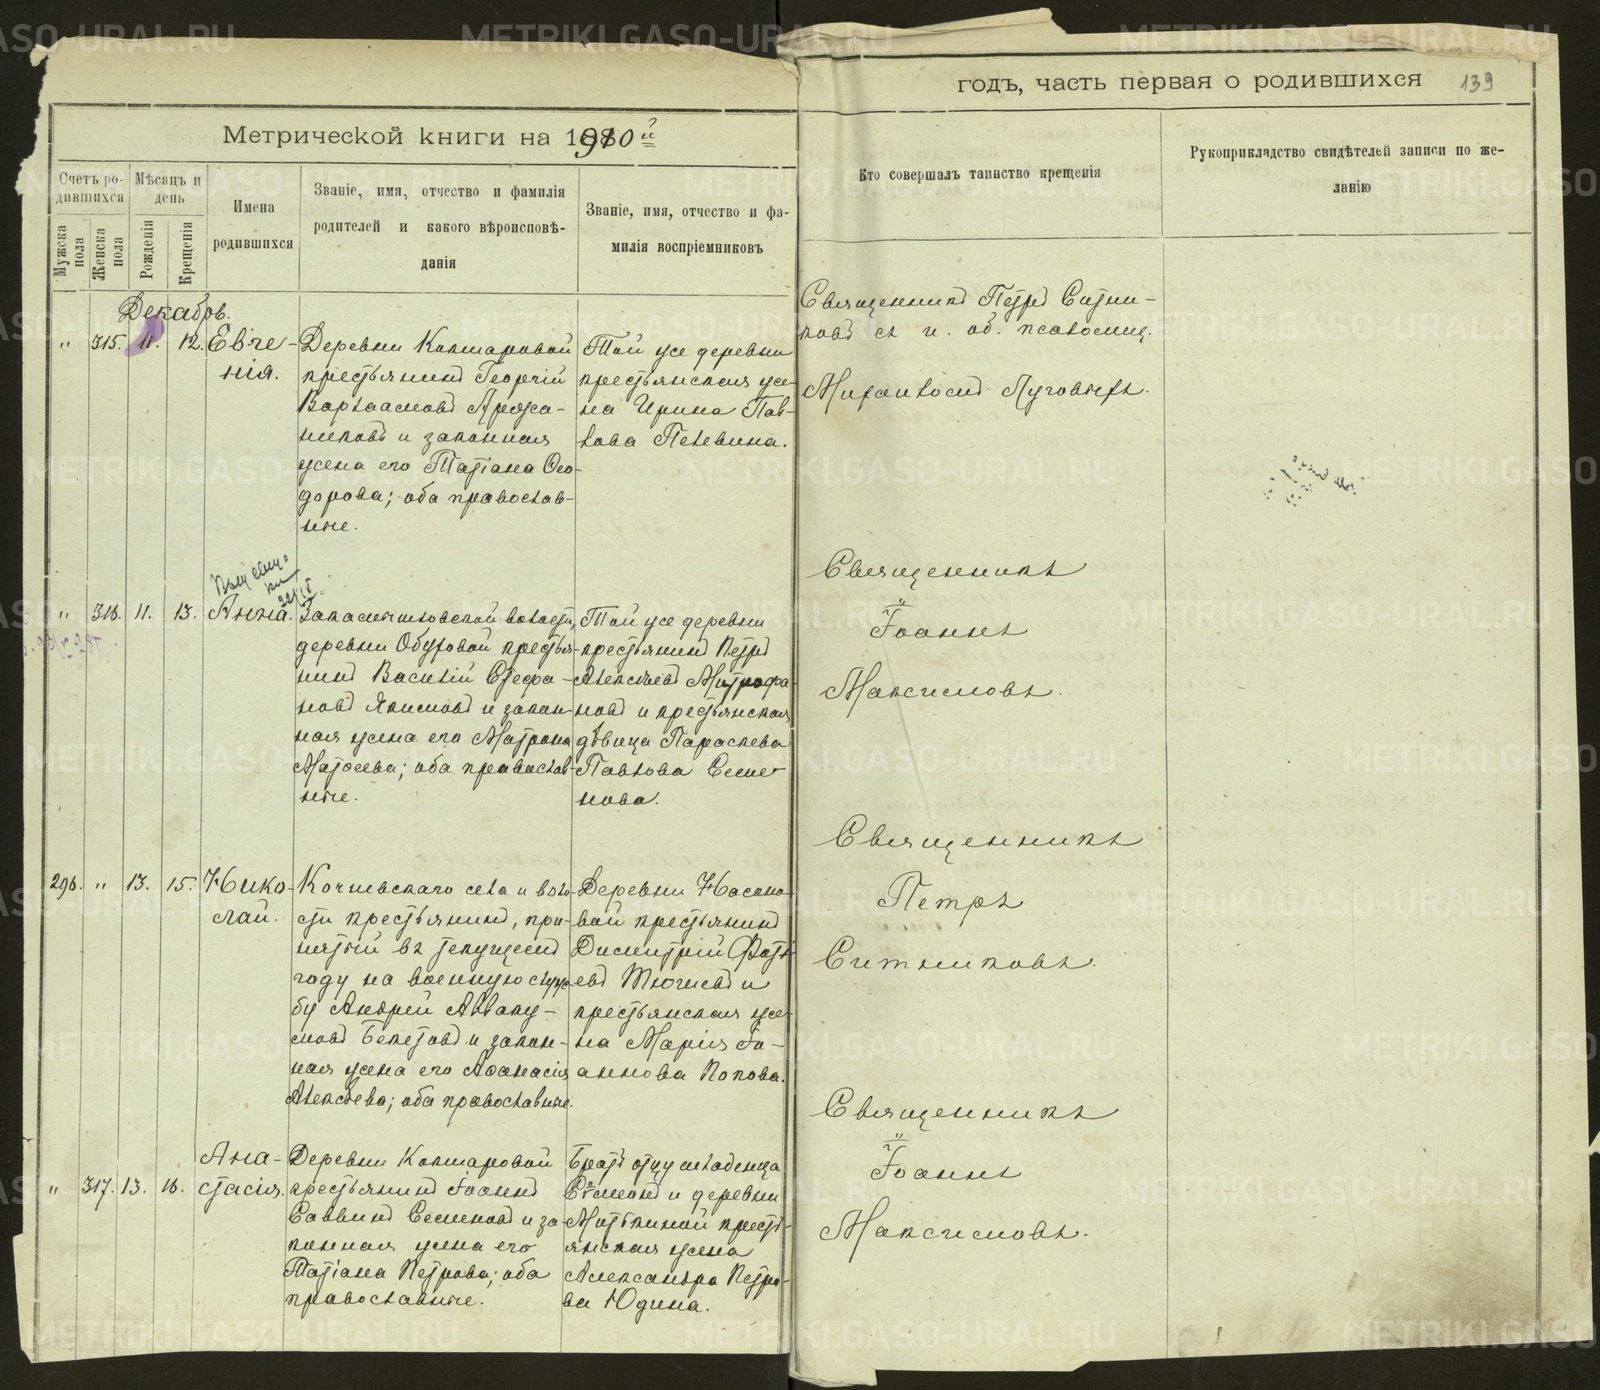 Метрической книги на 1910 й
годъ, часть первая о родившихся 139
Счетъ ро-
дившихся
Мѣсяцъ и
день
Мужска
пола
Женска
пола
Рожденія
Крещенія
Имена
родившихся
Званіе, имя, отчество и фамилія
родителей и какого вѣроисповѣ-
данія
Званіе, имя, отчество и фа-
милія воспріемниковъ
Кто совершалъ таинство крещенія
Рукоприкладство свидѣтелей записи по же-
ланію
Декабрь.
" 315. 11. 12. Евге-
нія.
Деревни Кокшаровой
крестьянинъ Георгій
Варлаамовъ
и законная
жена его Татіана Ѳео-
дорова; оба православ-
ные.
Той же деревни
крестьянская же-
на Ирина Пав-
лова Пелевина.
Священникъ Петръ Ситни-
ковъ съ и. об. псаломщ.
Луговыхъ.
" 316. 11. 13. Анна.
22/IV
волости,
деревни Обуховой крестья-
нинъ Василій Стефа-
новъ Якимовъ и закон-
ная жена его Матрона
оба православ-
ные.
Той же деревни
крестьянинъ Петръ
Алексіевъ Митрофа-
новъ и крестьянская
дѣвица Параскева
Павлова Семе-
нова.
Священникъ
Іоаннъ
Максимовъ.
296. " 13. 15. Нико-
лай.
Кочневскаго села и воло-
сти крестьянинъ, при-
нятый въ текущемъ
году на военную служ-
бу Андрей Авваку-
мовъ Бекетовъ и закон-
ная жена его Аѳанасія
Алексѣева; оба православные.
Деревни
вой крестьянинъ
Димитрій Фоті-
евъ и
крестьянская же-
на Марія Іо-
аннова Попова.
Священникъ
Петръ
Ситниковъ.
" 317. 13. 16. Ана-
стасія.
Деревни Кокшаровой
крестьянинъ Іоаннъ
Саввинъ Семеновъ и за-
конная жена его
Татіана Петрова; оба
православные.
Братъ отцу младенца
Сѵмеонъ и деревни
крестъ-
янская жена
Александра Петро-
ва Юдина.
Священникъ
Іоаннъ
Максимовъ.
METRIKI.GASO-URAL.RU